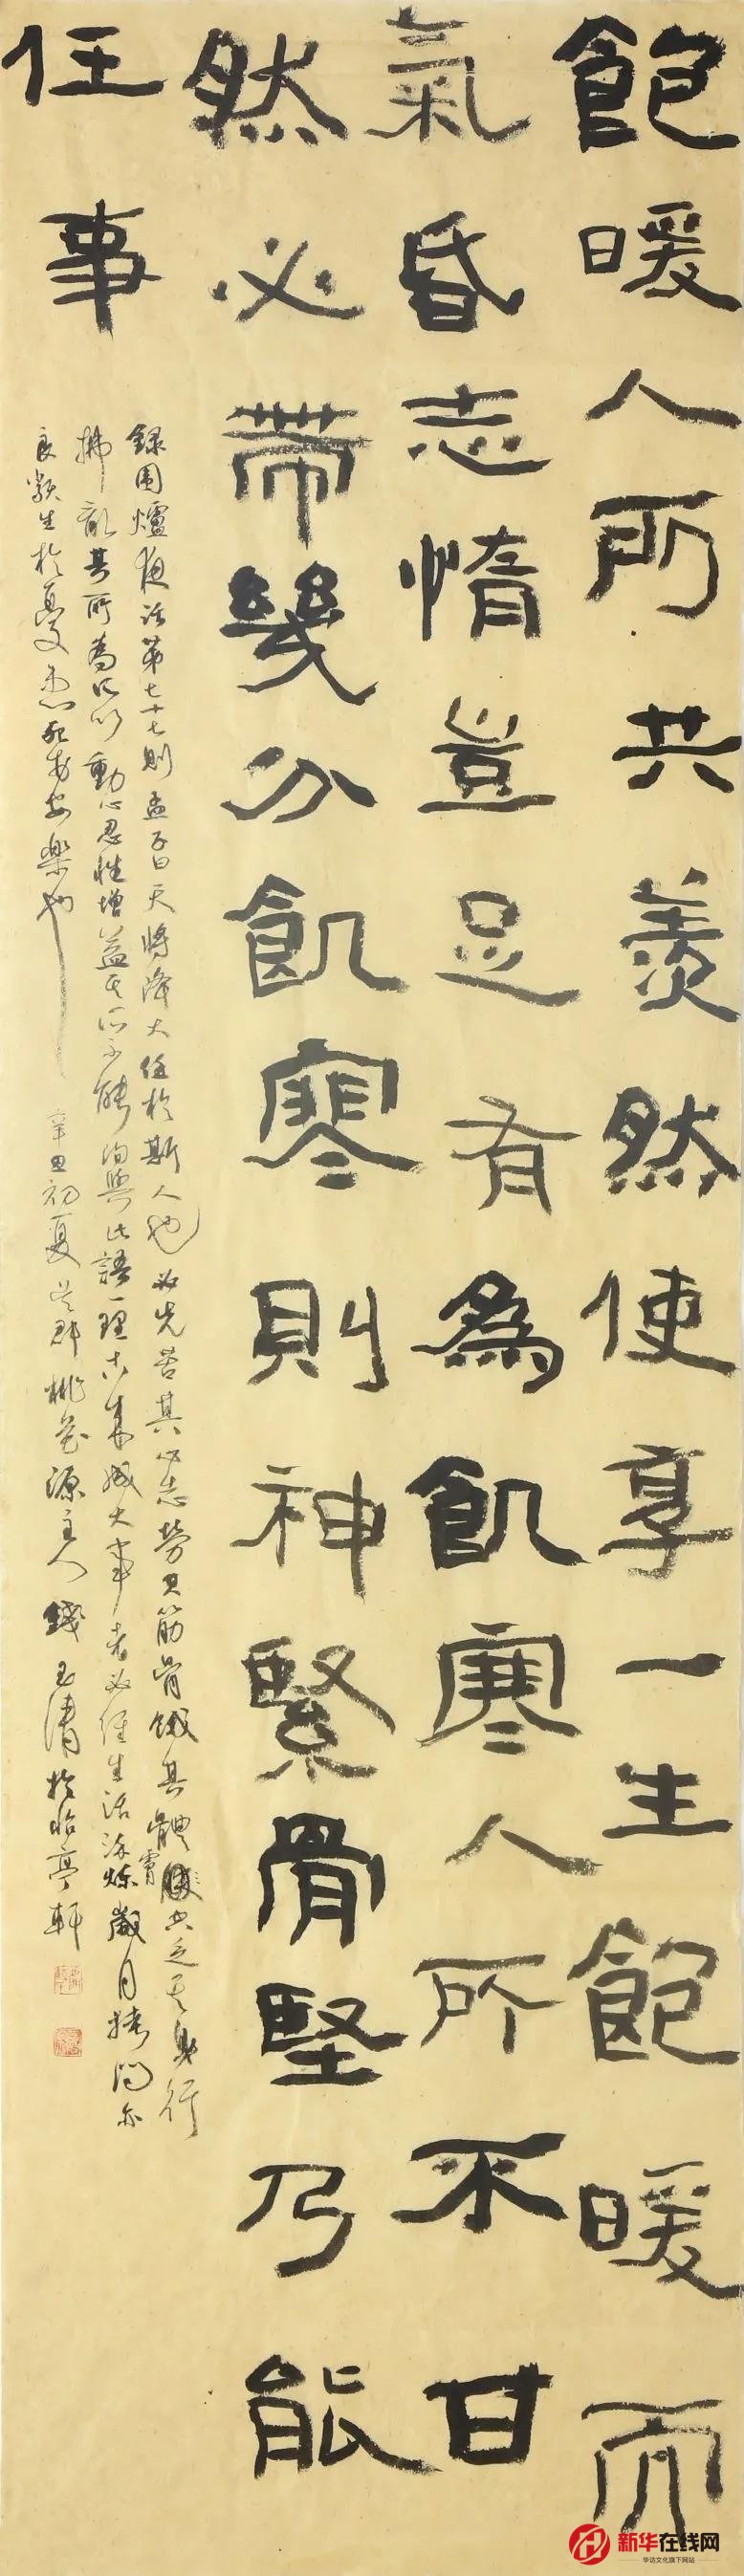 飽暖人所共羨然使享一生飽暖而
氣昏志惰豈足有為飢寒人所不甘
然必帶幾分飢寒則神緊骨堅乃能
任事
錄圍爐夜話第七十七則孟子曰天將降大任於斯人也必先苦其心志勞其筋骨餓其體膚空乏其身行
拂亂其所為所以動心忍性增益其所不能均與此語一理古來成大事者必經生活淬煉歲月拷問亦
生於憂患死於安樂也 辛丑初夏吳郡桃花源主人錢玉清於怡亭軒
新华在线网
华访文化旗下网站